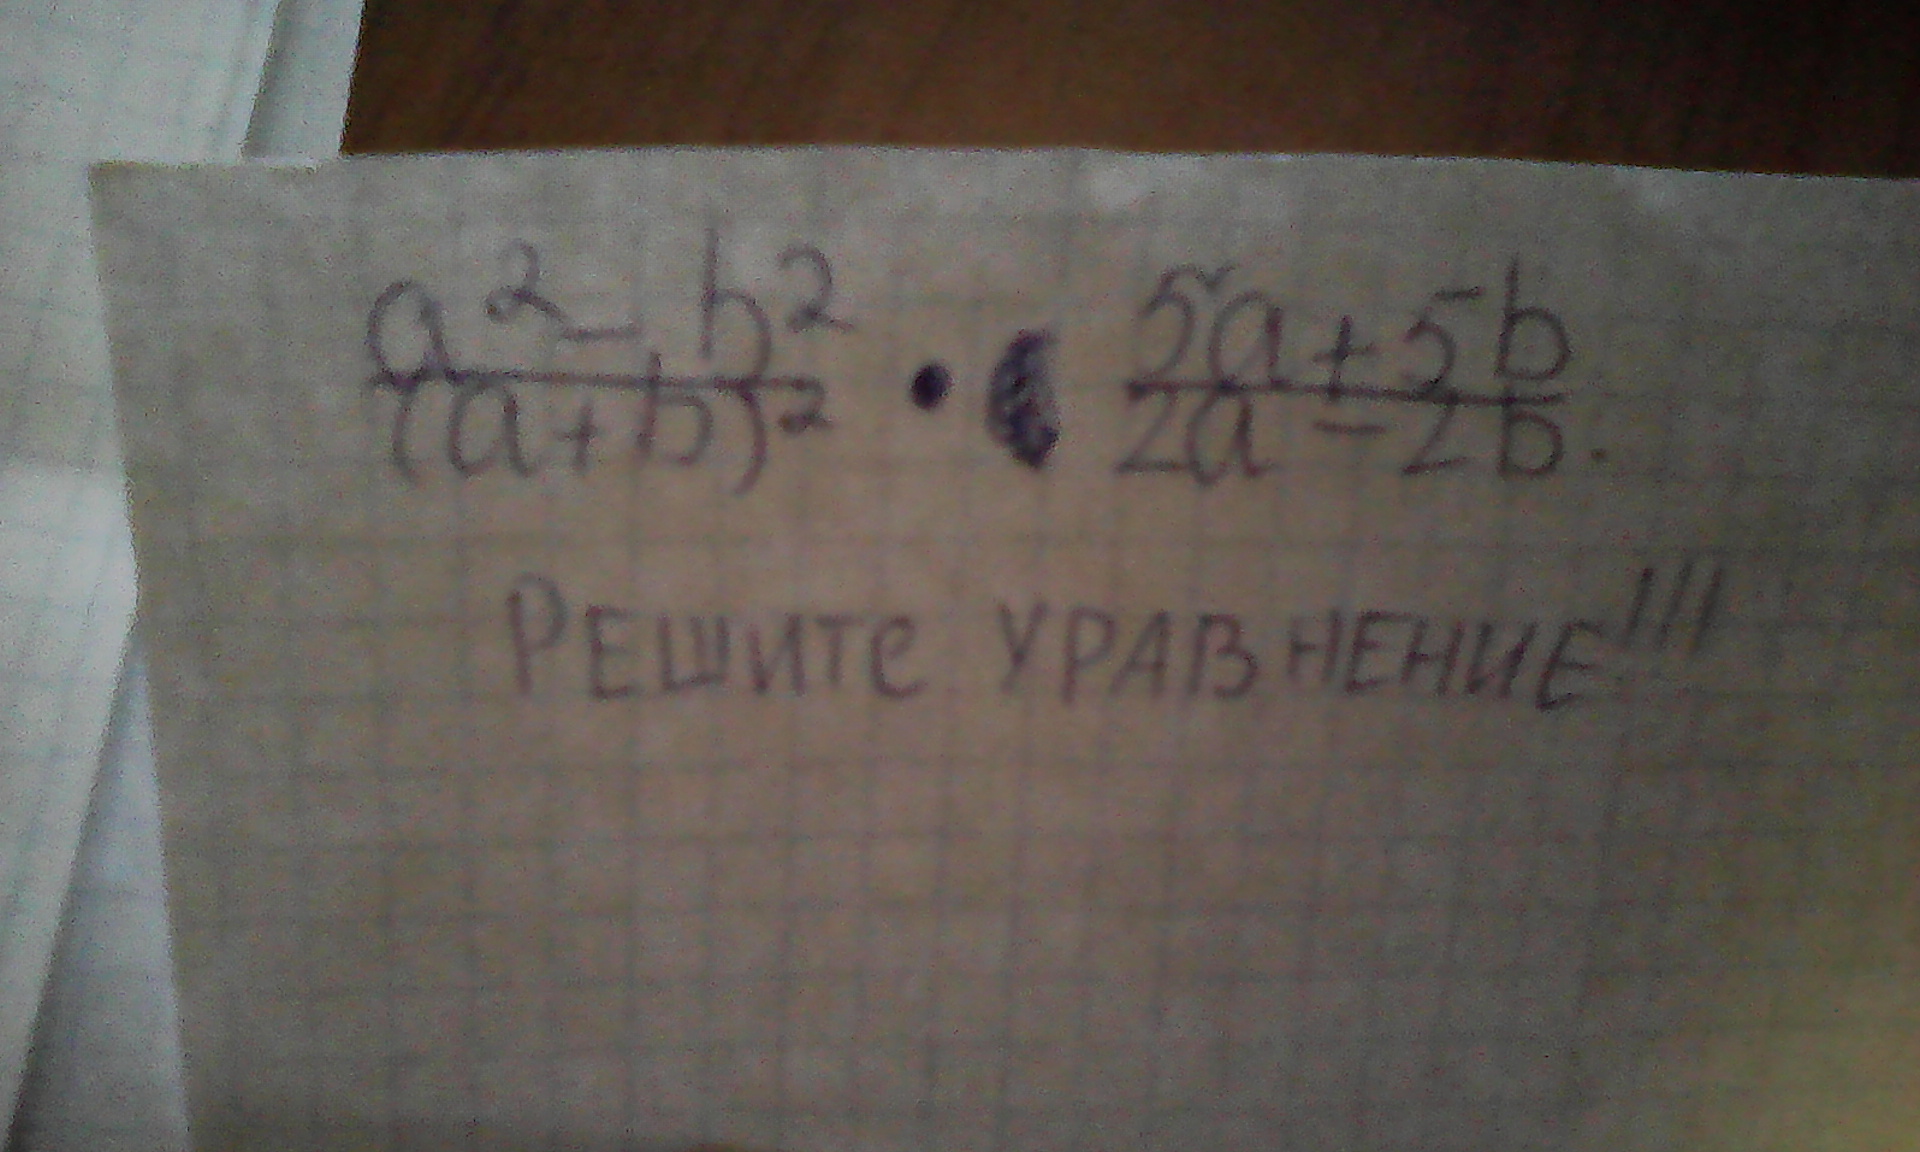 a² - b² · 5a + 5b
(a + b)² 2a - 2b.
РЕШИТЕ УРАВНЕНИЕ!!!